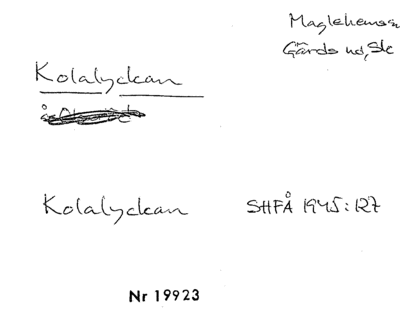 Maglehems sn
Gärds hd, Sk
Kolalyckan
Kolalyckan SHFÅ 1945:127
Nr 19923